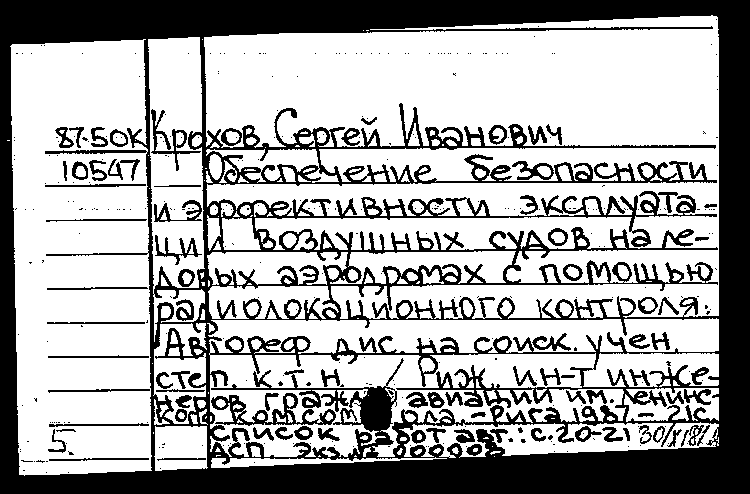 87-50К Крохов, Сергей Иванович
10547 Обеспечение безопасности
и эффективности эксплуата-
ции воздушных судов на ле-
довых аэродромах с помощью
радиолокационного контроля:
Автореф. дис. на соиск. учен.
степ. к.т.н. / Риж. ин-т инже-
неров гражд. авиации им. Ленинс-
кого комсомола. - Рига, 1987. - 21с.
Список работ авт.: с. 20-21
5. ДСП. Экз. №